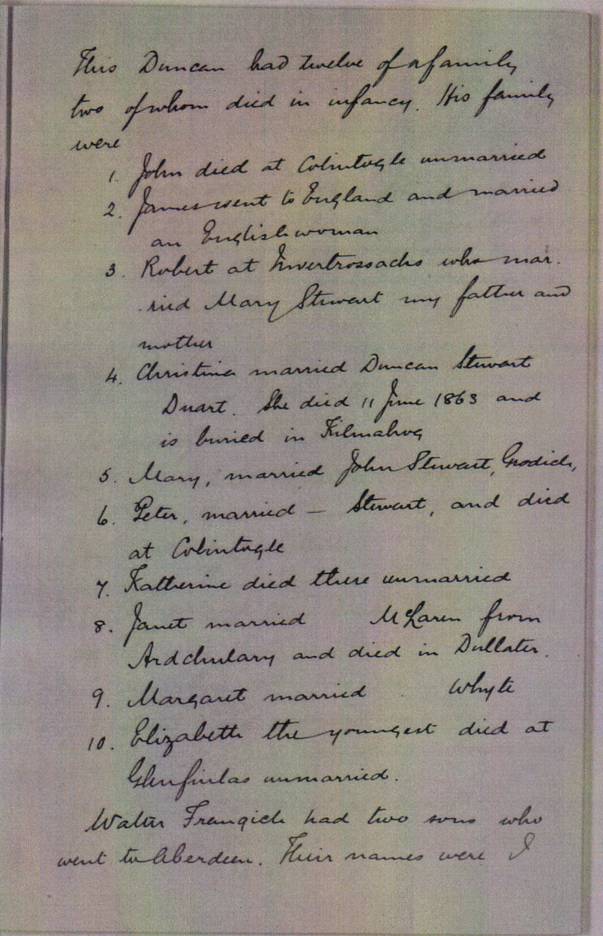 This Duncan had twelve of a family
two of whom died in infancy. His family
were
1. John died at Cobintogle unmarried
2. James went to England and married
an Englishwoman
3. Robert at Invertrossachs who mar-
ried Mary Stewart my father and
mother
4. Christina married Duncan Stewart
Duart. She died 11 June 1863 and
is buried in Kilmahog
5. Mary, married John Stewart,
6. Peter, married — Stewart, and died
at Cobintogle
7. Katherine died there unmarried
8. Janet married McLaren from
Ardchulary and died in Dullater.
9. Margaret married Whyte
10. Elizabeth the youngest died at
Glenfinlas unmarried.
Walter Frangich had two sons who
went to Aberdeen. Their names were I